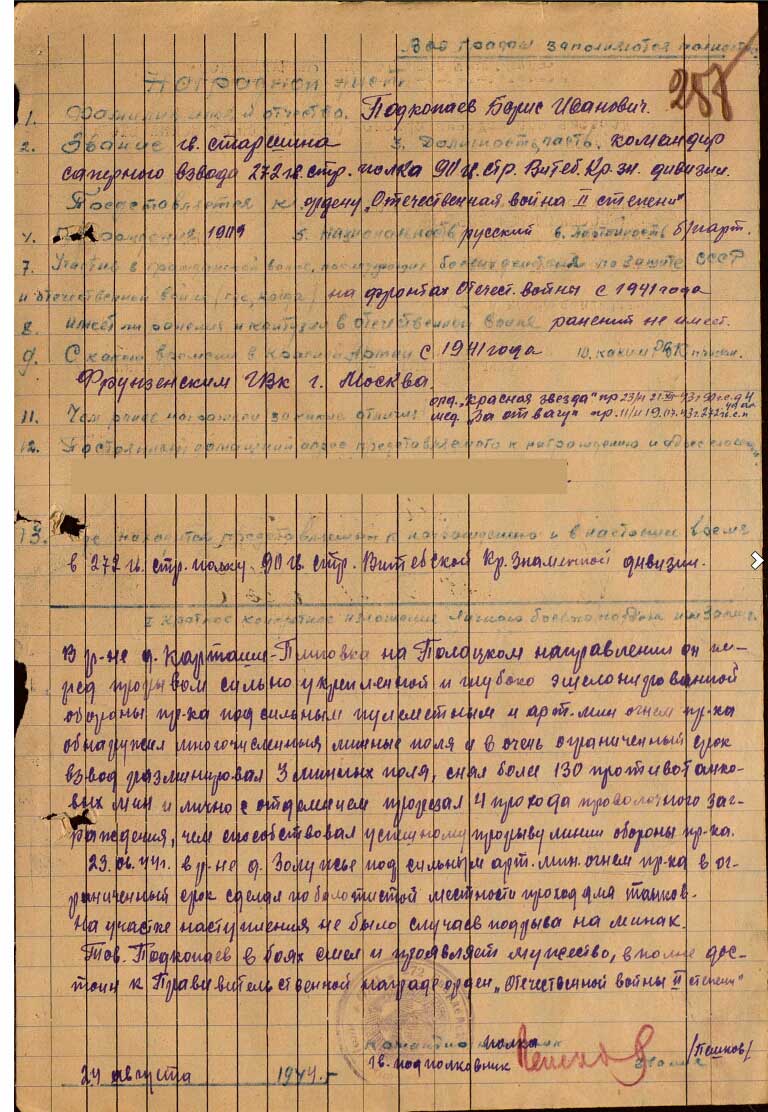 Все графы заполняются полностью
Наградной лист
287
1. Фамилия имя и отчество. Подкопаев Борис Иванович.
2. Звание гв. старшина 3. Должность, часть. командир
саперного взвода 272 гв. стр. полка 90 гв. стр. Витеб. Кр. зн. дивизии.
Представляется к ордену „Отечественная война II степени"
4. рождения 1909 5. национальность русский 6. Партийность б/парт.
7. Участие в гражданской войне, последующих боевых действиях по защите СССР
и отечественной войне (где, когда) на фронтах Отечест. войны с 1941 года
8. Имеет ли ранения и контузии в отечественной войне ранений не имеет.
9. С какого времени в Красной Армии с 1941 года 10. каким РВК призван.
Фрунзенским ГВК г. Москва.
орд. „Красная звезда" пр 23/н
11. Чем ранее награжден за какие отличия мед. „За отвагу" пр. 11/н 19.07.43г. 272 гв. с.п
12. Постоянный домашний адрес представляемого к награждению и адрес
13. Где находится представляемый к награждению и в настоящее время
в 272 гв. стр. полку 90 гв. стр. Витебской Кр. Знаменной дивизии.
I Краткое конкретное изложение личного боевого подвига или заслуг
В р-не д. Карташи-Плиговка на Полоцком направлении он пе-
ред прорывом сильно укрепленной и глубоко эшелонированной
обороны пр-ка под сильным пулеметным и арт. мин огнем пр-ка
обнаружил многочисленныя минные поля и в очень ограниченный срок
взвод разминировал 3 минных поля, снял более 130 противотанко-
вых мин и лично с отделением прорезал 4 прохода проволочного заг-
раждения, чем способствовал успешному прорыву линии обороны пр-ка.
23.06.44г. в р-не д. Золужье под сильным арт. мин. огнем пр-ка в ог-
раниченный срок сделал по болотистой местности проход для танков.
На участке наступления не было случаев подрыва на минах.
Тов. Подкопаев в боях смел и проявляет мужество, вполне дос-
тоин к Правительственной награде орден „Отечественной войны II степени"
Командир полка
гв. подполковник Пешков /Пешков/
24 августа 1944 г.